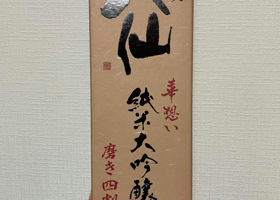 八仙
華想い
純米大吟醸
磨き四割